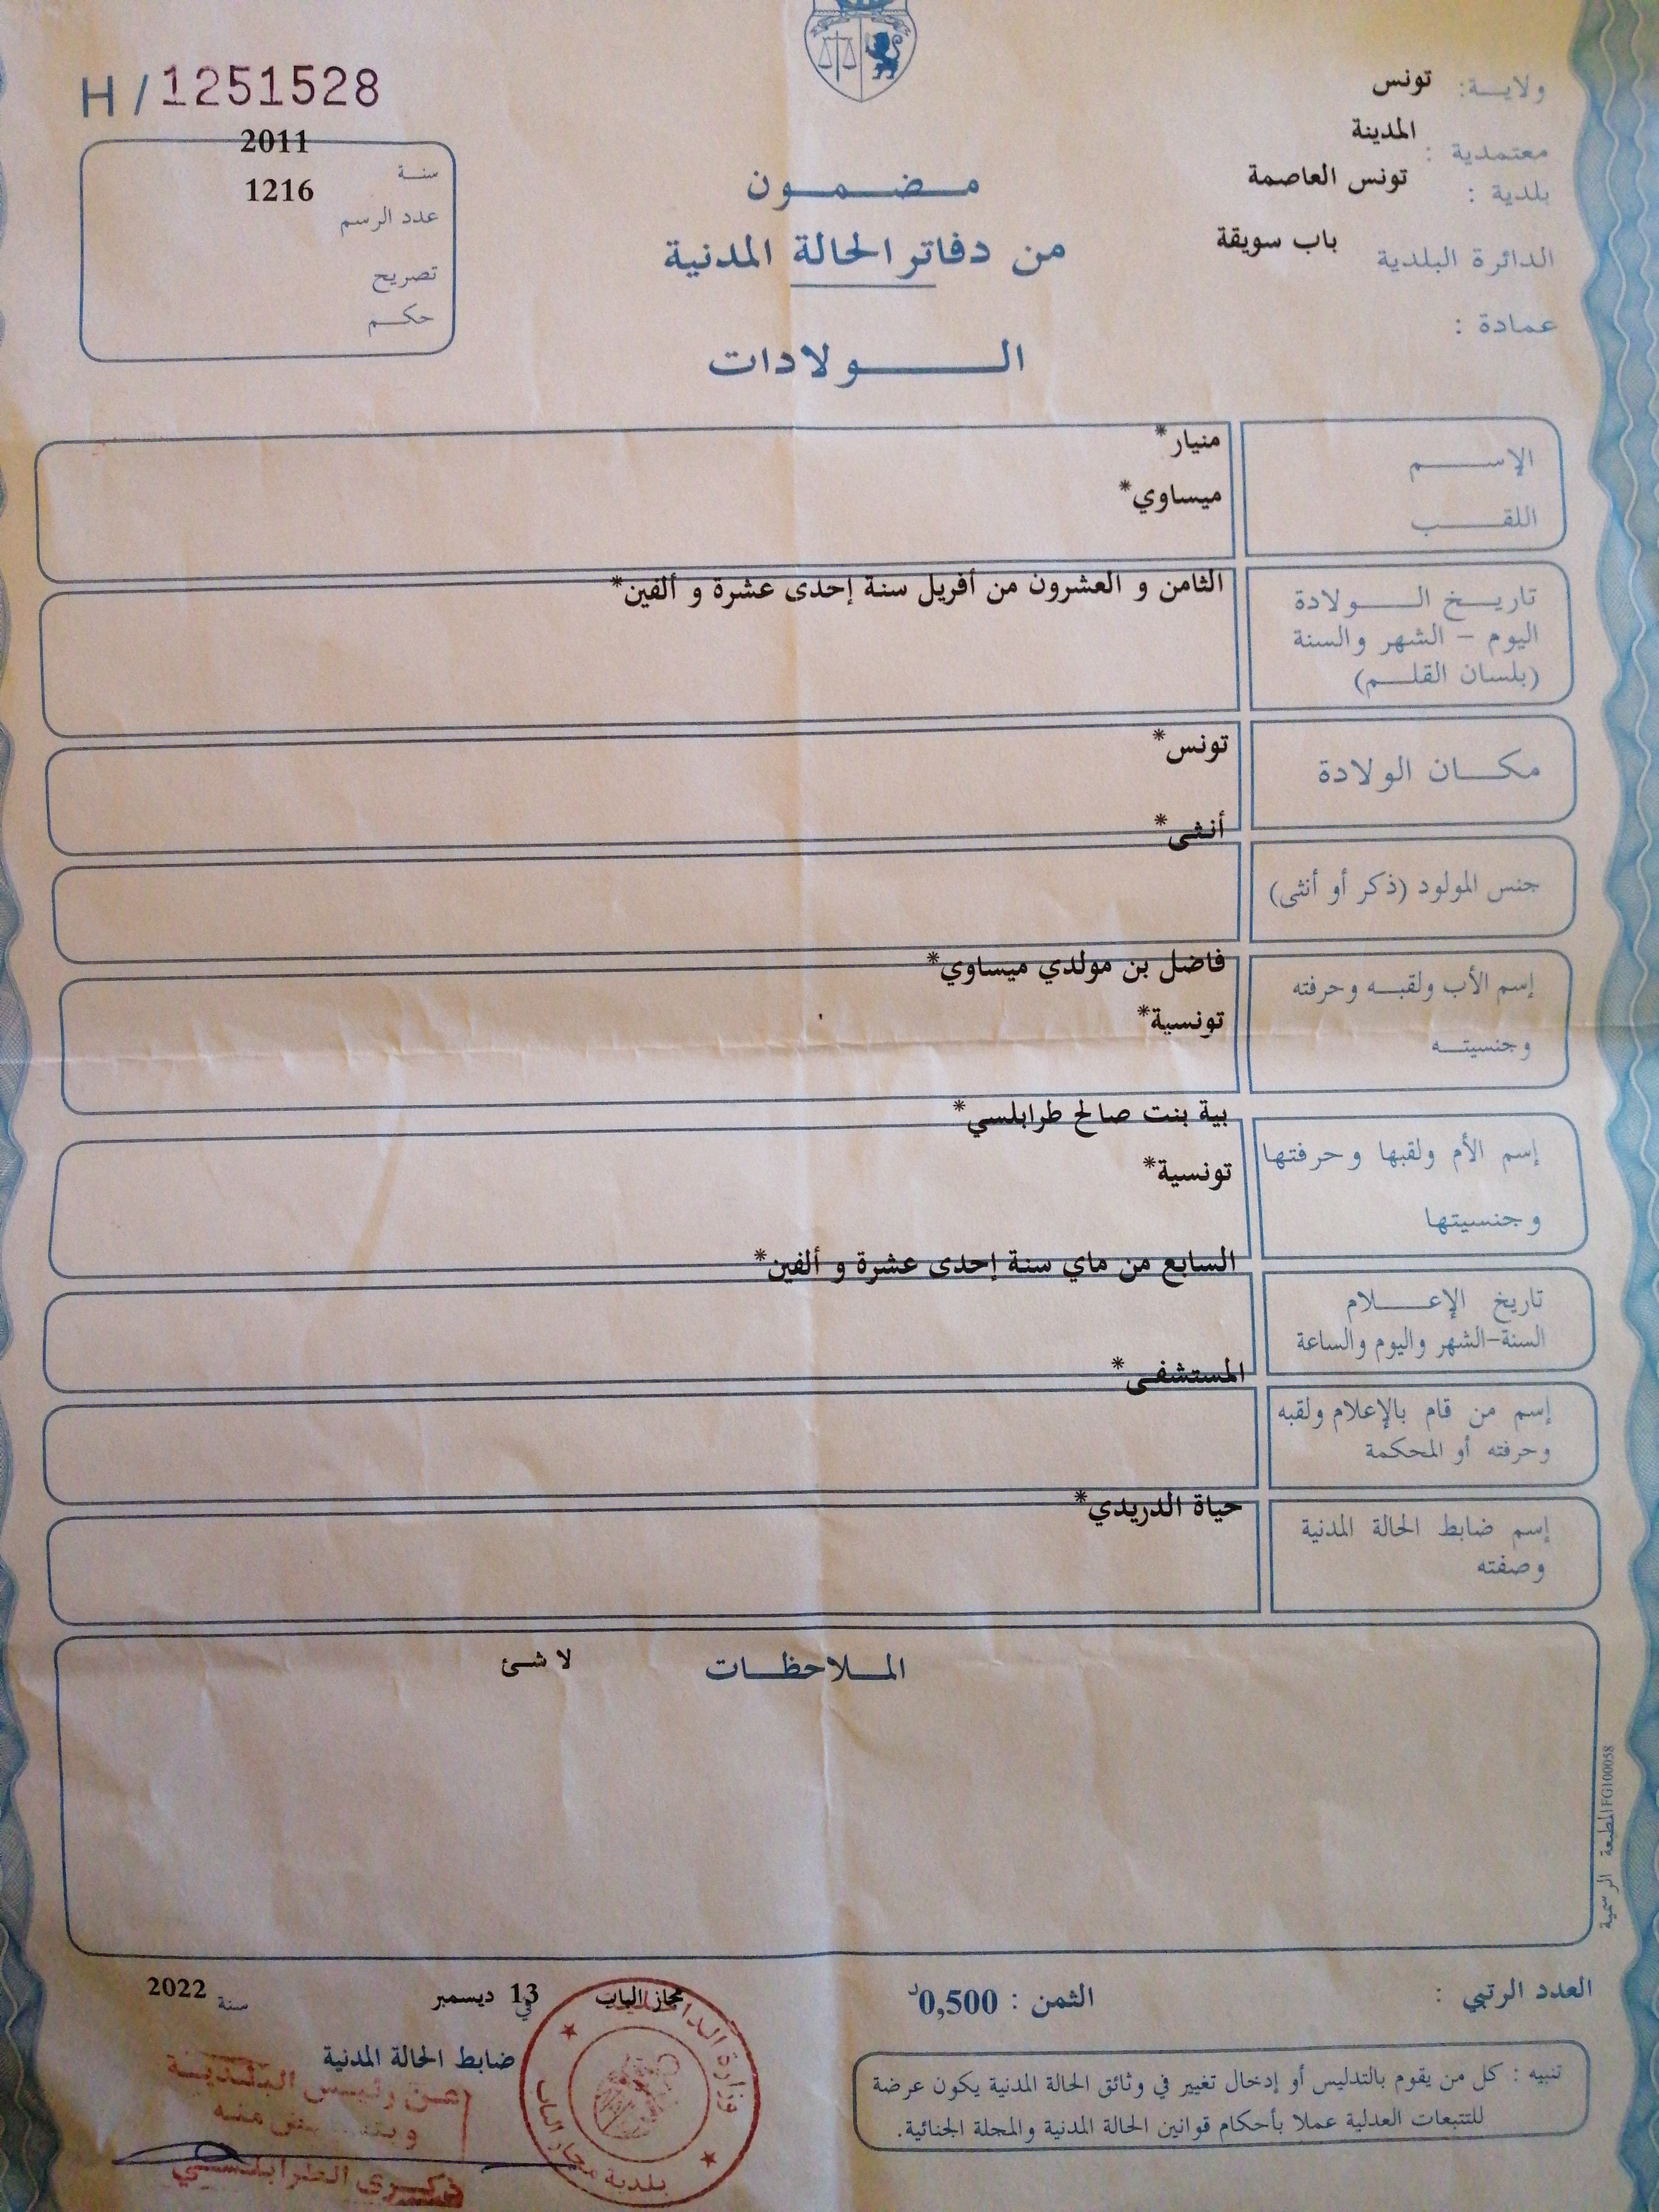 H/1251528
ولاية: تونس
معتمدية : المدينة
بلدية : تونس العاصمة
الدائرة البلدية باب سويقة
عمادة :
سنة 2011
عدد الرسم 1216
تصريح
حكم
مضمون
من دفاتر الحالة المدنية
الولادات
الإسم منيار*
اللقب ميساوي*
تاريخ الولادة الثامن و العشرون من أفريل سنة إحدى عشرة و ألفين*
اليوم - الشهر والسنة
(بلسان القلم)
مكان الولادة تونس*
جنس المولود (ذكر أو أنثى) أنثى*
إسم الأب ولقبه وحرفته فاضل بن مولدي ميساوي*
وجنسيته تونسية*
إسم الأم ولقبها وحرفتها بية بنت صالح طرابلسي*
وجنسيتها تونسية*
تاريخ الإعلام السابع من ماي سنة إحدى عشرة و ألفين*
السنة-الشهر واليوم والساعة
إسم من قام بالإعلام ولقبه المستشفى*
وحرفته أو المحكمة
إسم ضابط الحالة المدنية حياة الدريدي*
وصفته
الملاحظات لا شئ
المطبعة الرسمية FG100058
العدد الرتبي :
الثمن : 0,500د
مجاز الباب في 13 ديسمبر سنة 2022
ضابط الحالة المدنية
عن رئيس البلدية
منه
ذكرى الطرابلسي
بلدية مجاز الباب
وزارة
تنبيه : كل من يقوم بالتدليس أو إدخال تغيير في وثائق الحالة المدنية يكون عرضة
للتتبعات العدلية عملا بأحكام قوانين الحالة المدنية والمجلة الجنائية.